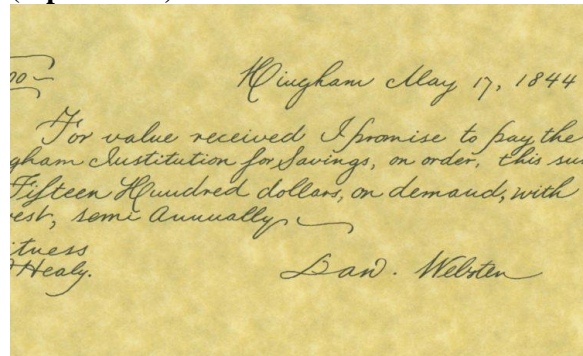 00— Hingham May 17, 1844
For value received I promise to pay the
gham Institution for Savings, on order, this su
Fifteen Hundred dollars, on demand, with
est, semi Annually
itness
Healy. Dan. Webster